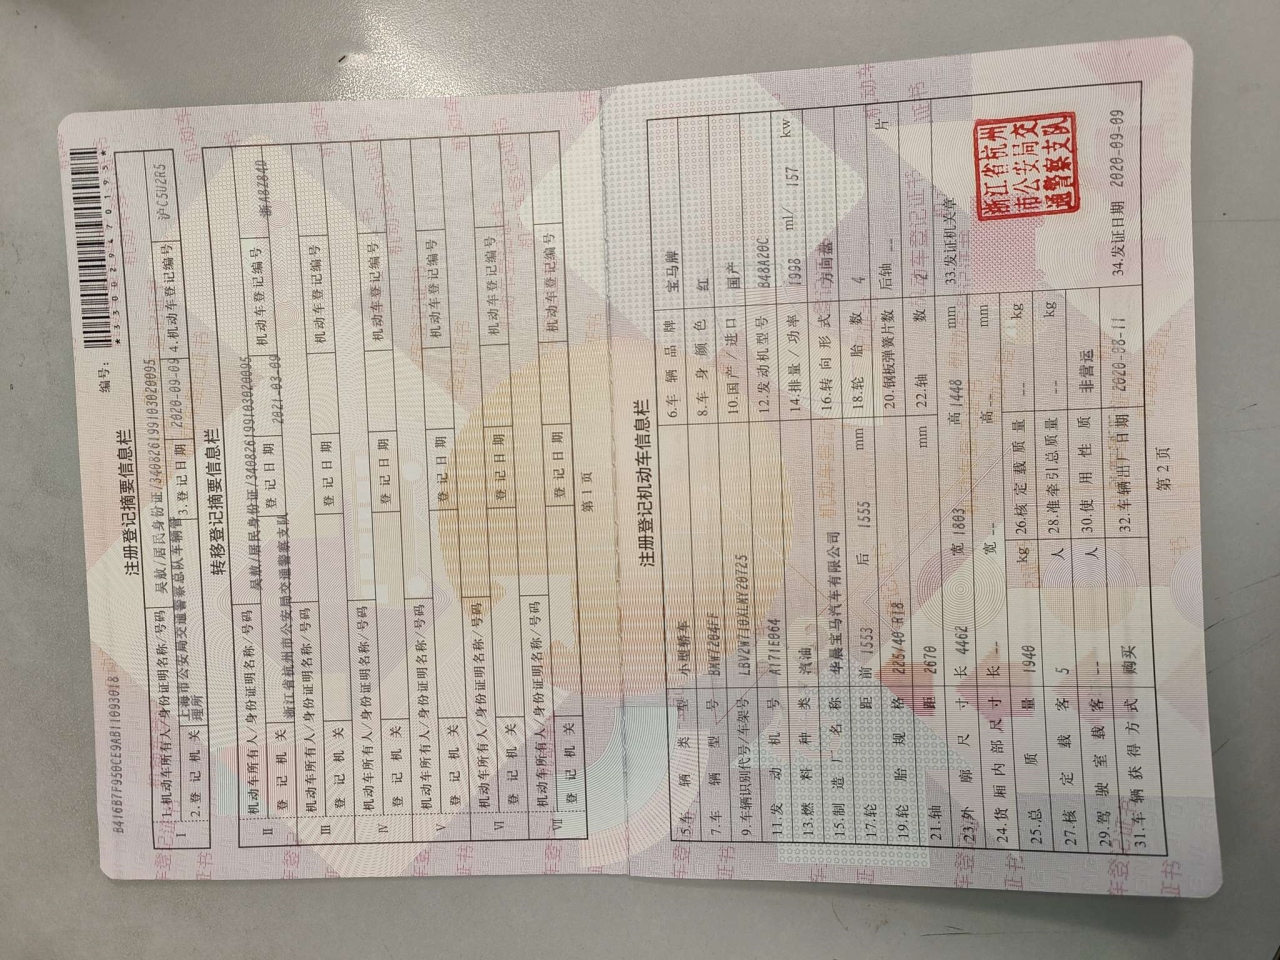 B416B7F950CE9AB11093018
编号:
*330029470195*
注册登记摘要信息栏
Ⅰ 1.机动车所有人/身份证明名称/号码 吴敏/居民身份证/340826199103020095
2.登记机关 上海市公安局交通警察总队车辆管理所 3.登记日期 2020-09-09 4.机动车登记编号 沪C5U2R5
转移登记摘要信息栏
Ⅱ 机动车所有人/身份证明名称/号码 吴敏/居民身份证/340826199103020095
登记机关 浙江省杭州市公安局交通警察支队 登记日期 2021-03-09 机动车登记编号 浙A8Z840
Ⅲ 机动车所有人/身份证明名称/号码
登记机关 登记日期 机动车登记编号
Ⅳ 机动车所有人/身份证明名称/号码
登记机关 登记日期 机动车登记编号
Ⅴ 机动车所有人/身份证明名称/号码
登记机关 登记日期 机动车登记编号
Ⅵ 机动车所有人/身份证明名称/号码
登记机关 登记日期 机动车登记编号
Ⅶ 机动车所有人/身份证明名称/号码
登记机关 登记日期 机动车登记编号
第1页
注册登记机动车信息栏
5.车辆类型 小型轿车 6.车辆品牌 宝马牌
7.车辆型号 BMW7204FF 8.车身颜色 红
9.车辆识别代号/车架号 10.国产/进口 国产
11.发动机号 A171E064 12.发动机型号 B48A20C
13.燃料种类 汽油 14.排量/功率 1998 ml/ 157 kw
15.制造厂名称 华晨宝马汽车有限公司 16.转向形式 方向盘
17.轮距 前 1553 后 1555 mm 18.轮胎数 4
19.轮胎规格 225/40 R18 20.钢板弹簧片数 后轴 -- 片
21.轴距 2670 mm 22.轴数 2
23.外廓尺寸 长 4462 宽 1803 高 1448 mm
24.货厢内部尺寸 长 -- 宽 -- 高 -- mm
25.总质量 1940 kg 26.核定载质量 -- kg
27.核定载客 5 人 28.准牵引总质量 -- kg
29.驾驶室载客 -- 人 30.使用性质 非营运
31.车辆获得方式 购买 32.车辆出厂日期 2020-08-11
33.发证机关章
浙江省杭州
市公安局交
通警察支队
34.发证日期 2020-09-09
第2页